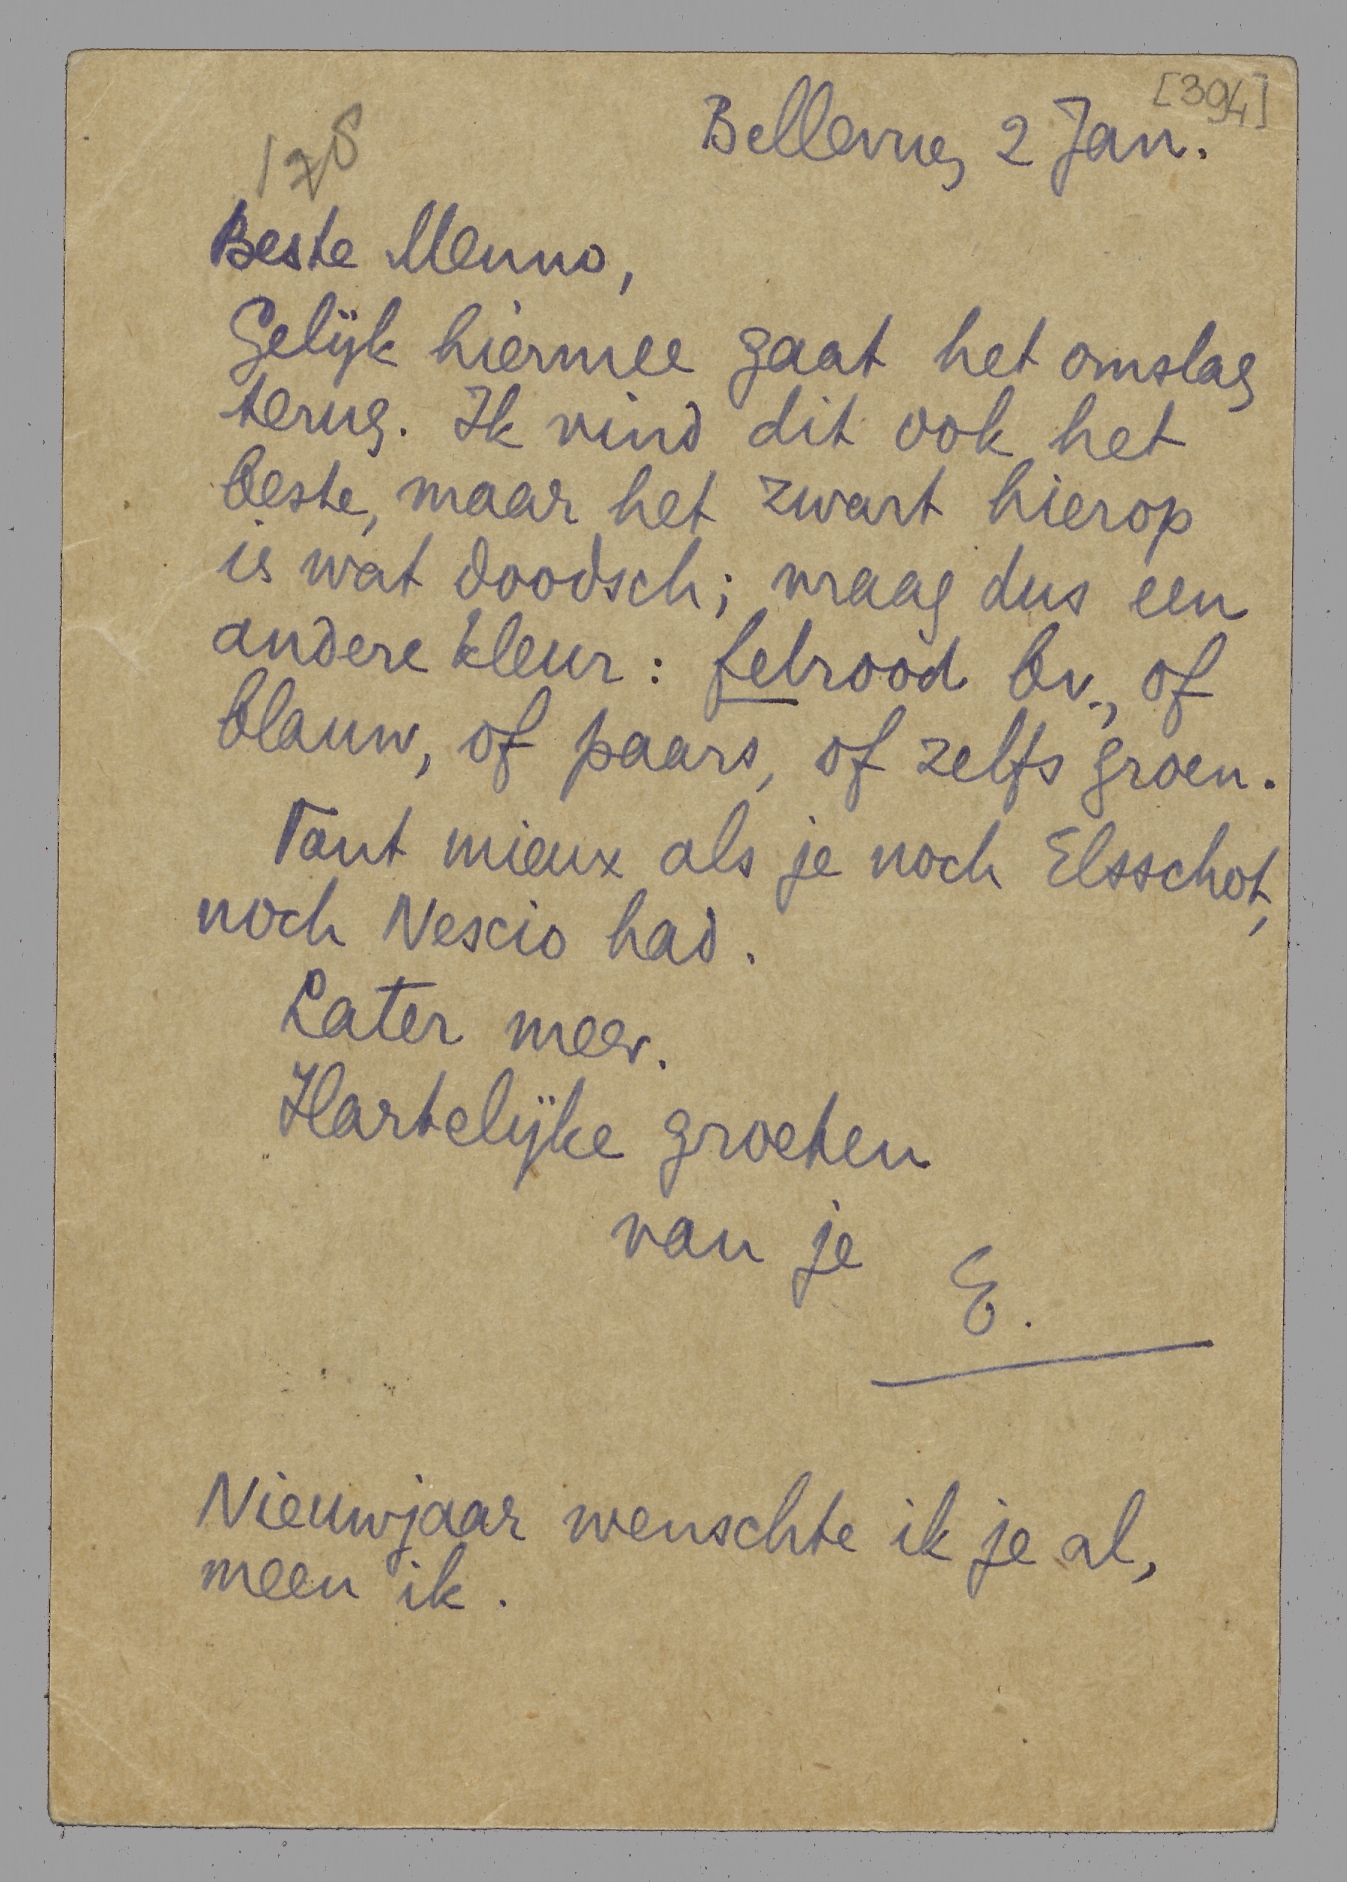 [394]
Bellevue, 2 Jan.
178
Beste Menno,
Gelijk hiermee gaat het omslag
terug. Ik vind dit ook het
beste, maar het zwart hierop
is wat doodsch; vraag dus een
andere kleur: felrood bv., of
blauw, of paars, of zelfs groen.
Tant mieux als je noch Elsschot,
noch Nescio had.
Later meer.
Hartelijke groeten
van je E.
Nieuwjaar wenschte ik je al,
meen ik.